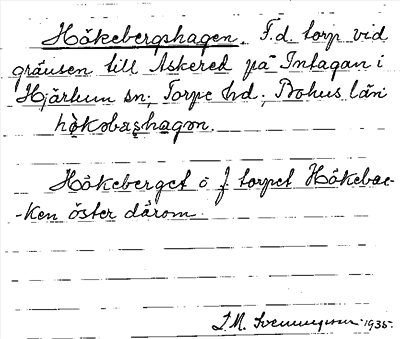 Hökebergshagen. F.d. torp vid
gränsen till Askered på Intagan i
Hjärtum sn; Torpe hd; Bohus län
hö̀kobashagon.
Hökeberget o f torpet Hökebac-
-ken öster därom.
S.M. Svenungsson 1935.